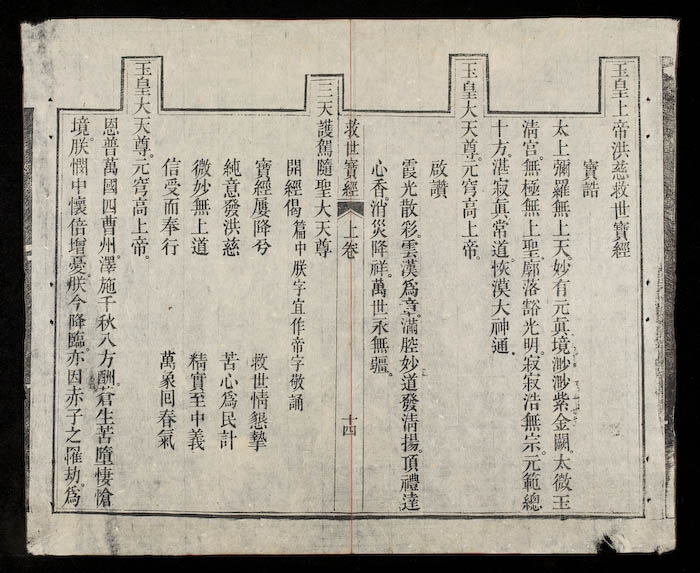 玉皇上帝洪慈救世寶經
寶誥
太上彌羅無上天。妙有元眞境。渺渺紫金闕。太微玉
淸宮。無極無上聖。廓落豁光明。寂寂浩無宗。元範總
十方。湛寂眞常道。恢漠大神通。
玉皇大天尊。元穹高上帝。
啟讚
霞光散彩。雲漢爲章。滿腔妙道發淸揚。頂禮達
心香。消災降祥。萬世永無疆。
救世寶經 上卷 十四
三天護駕隨聖大天尊
開經偈 篇中朕字宜作帝字敬誦
寶經屢降兮 救世情懇摯
純意發洪慈 苦心爲民計
微妙無上道 精實至中義
信受而奉行 萬象回春氣
玉皇大天尊。元穹高上帝。
恩普萬國四曹州。澤施千秋八方酬。蒼生苦墮悽愴
境。朕憫中懷倍增憂。朕今降臨。亦因赤子之罹劫。爲